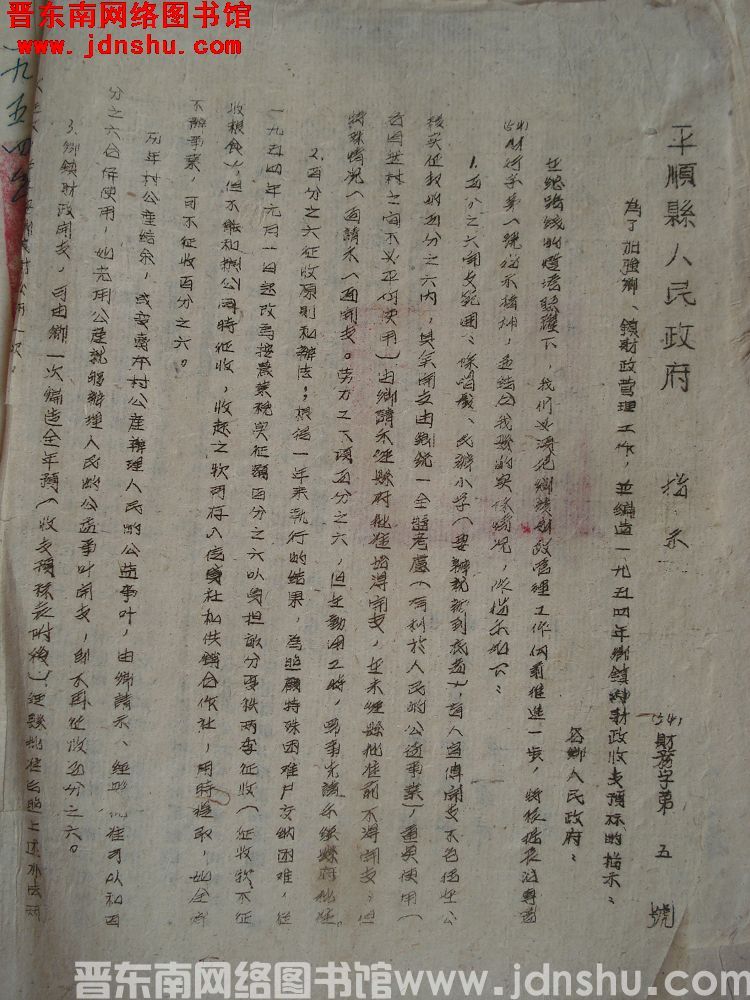 晋东南网络图书馆
www.jdnshu.com
一九五四年
平順縣人民政府 指示
(54)財務字第五號
為了加強鄉、鎮財政管理工作，並編造一九五四年鄉鎮財政收支預标的指示：
各鄉人民政府：
在總路綫的燈塔照耀下，我們必須把鄉鎮財政管理工作向前推進一步，將根據長治專署
(54)財行字第一號指示精神，並結合我縣的实际情况，作指示如下：
1.百分之六開支範圍：保唱戲、民辦小学(要辦就辦到底者)，盲人宣傳開支不包括在公
粮实征数的百分之六内，其余開支由鄉統一全盤考慮(有利於人民的公益事業)，適莫使用(
各自然村之間不必平均使用)由鄉請示經縣府批准始得開支，在未經縣批准前不得開支；但
特殊情况(面請示)面開支。劳力之下項百分之六，但在動用工時，需事先請示經縣府批准。
2.百分之六征收原則和辦法：根据一年来执行的结果，為照顧特殊困难户交納困難，從
一九五四年元月一日起改為按農業税实征額百分之六以負担畝分夏秋两季征收(征收款不征
收粮食)，但不能和机公同時征收，收起之款可存入信貸社和供銷合作社，用時提取，如全年
不辦事業，可不征收百分之六。
历年村公産结余，或变賣本村公産辦理人民的公益事叶，由鄉請示、經县批准可以和百
分之六合併使用，如光用公産就够辦理人民的公益事叶開支，即不再征收百分之六。
3.鄉鎮財政開支，可由鄉一次編造全年預(收支預标表附後)經縣批准后照上述办法两
晋东南网络图书馆www.jdnshu.com